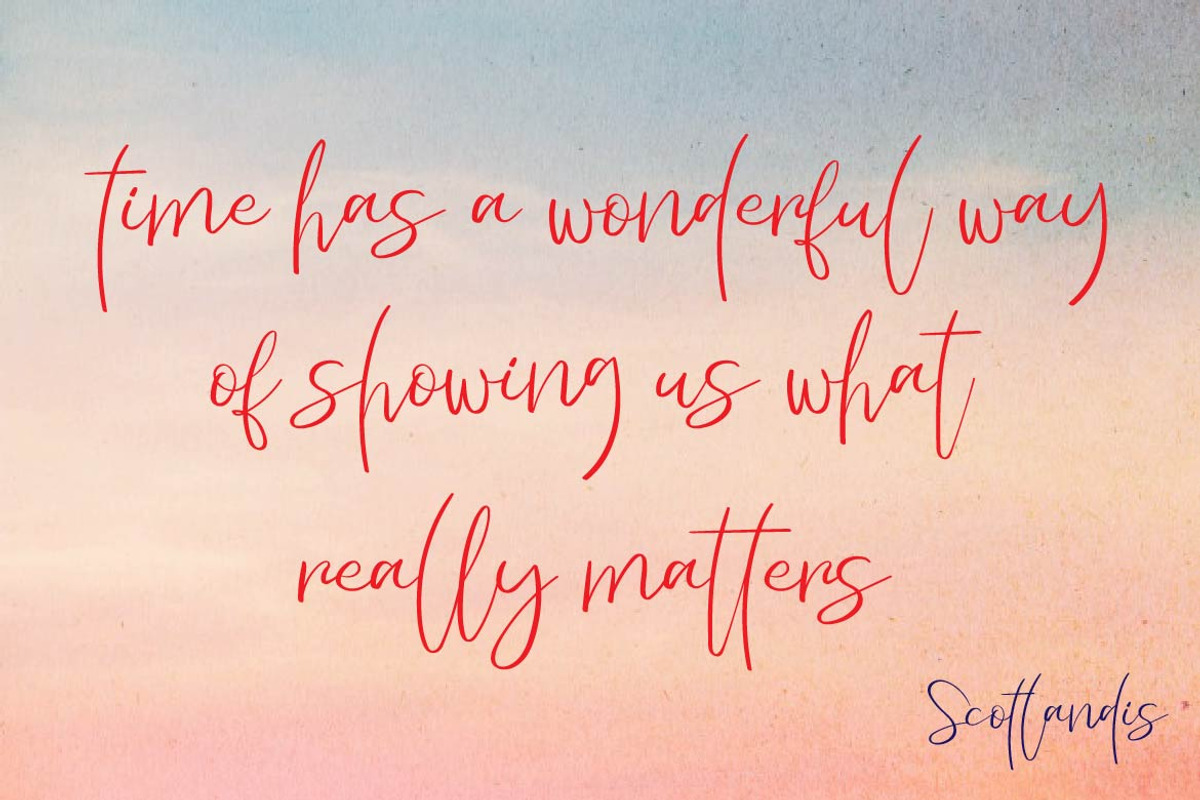 time has a wonderful way
of showing us what
really matters
Scottlandis